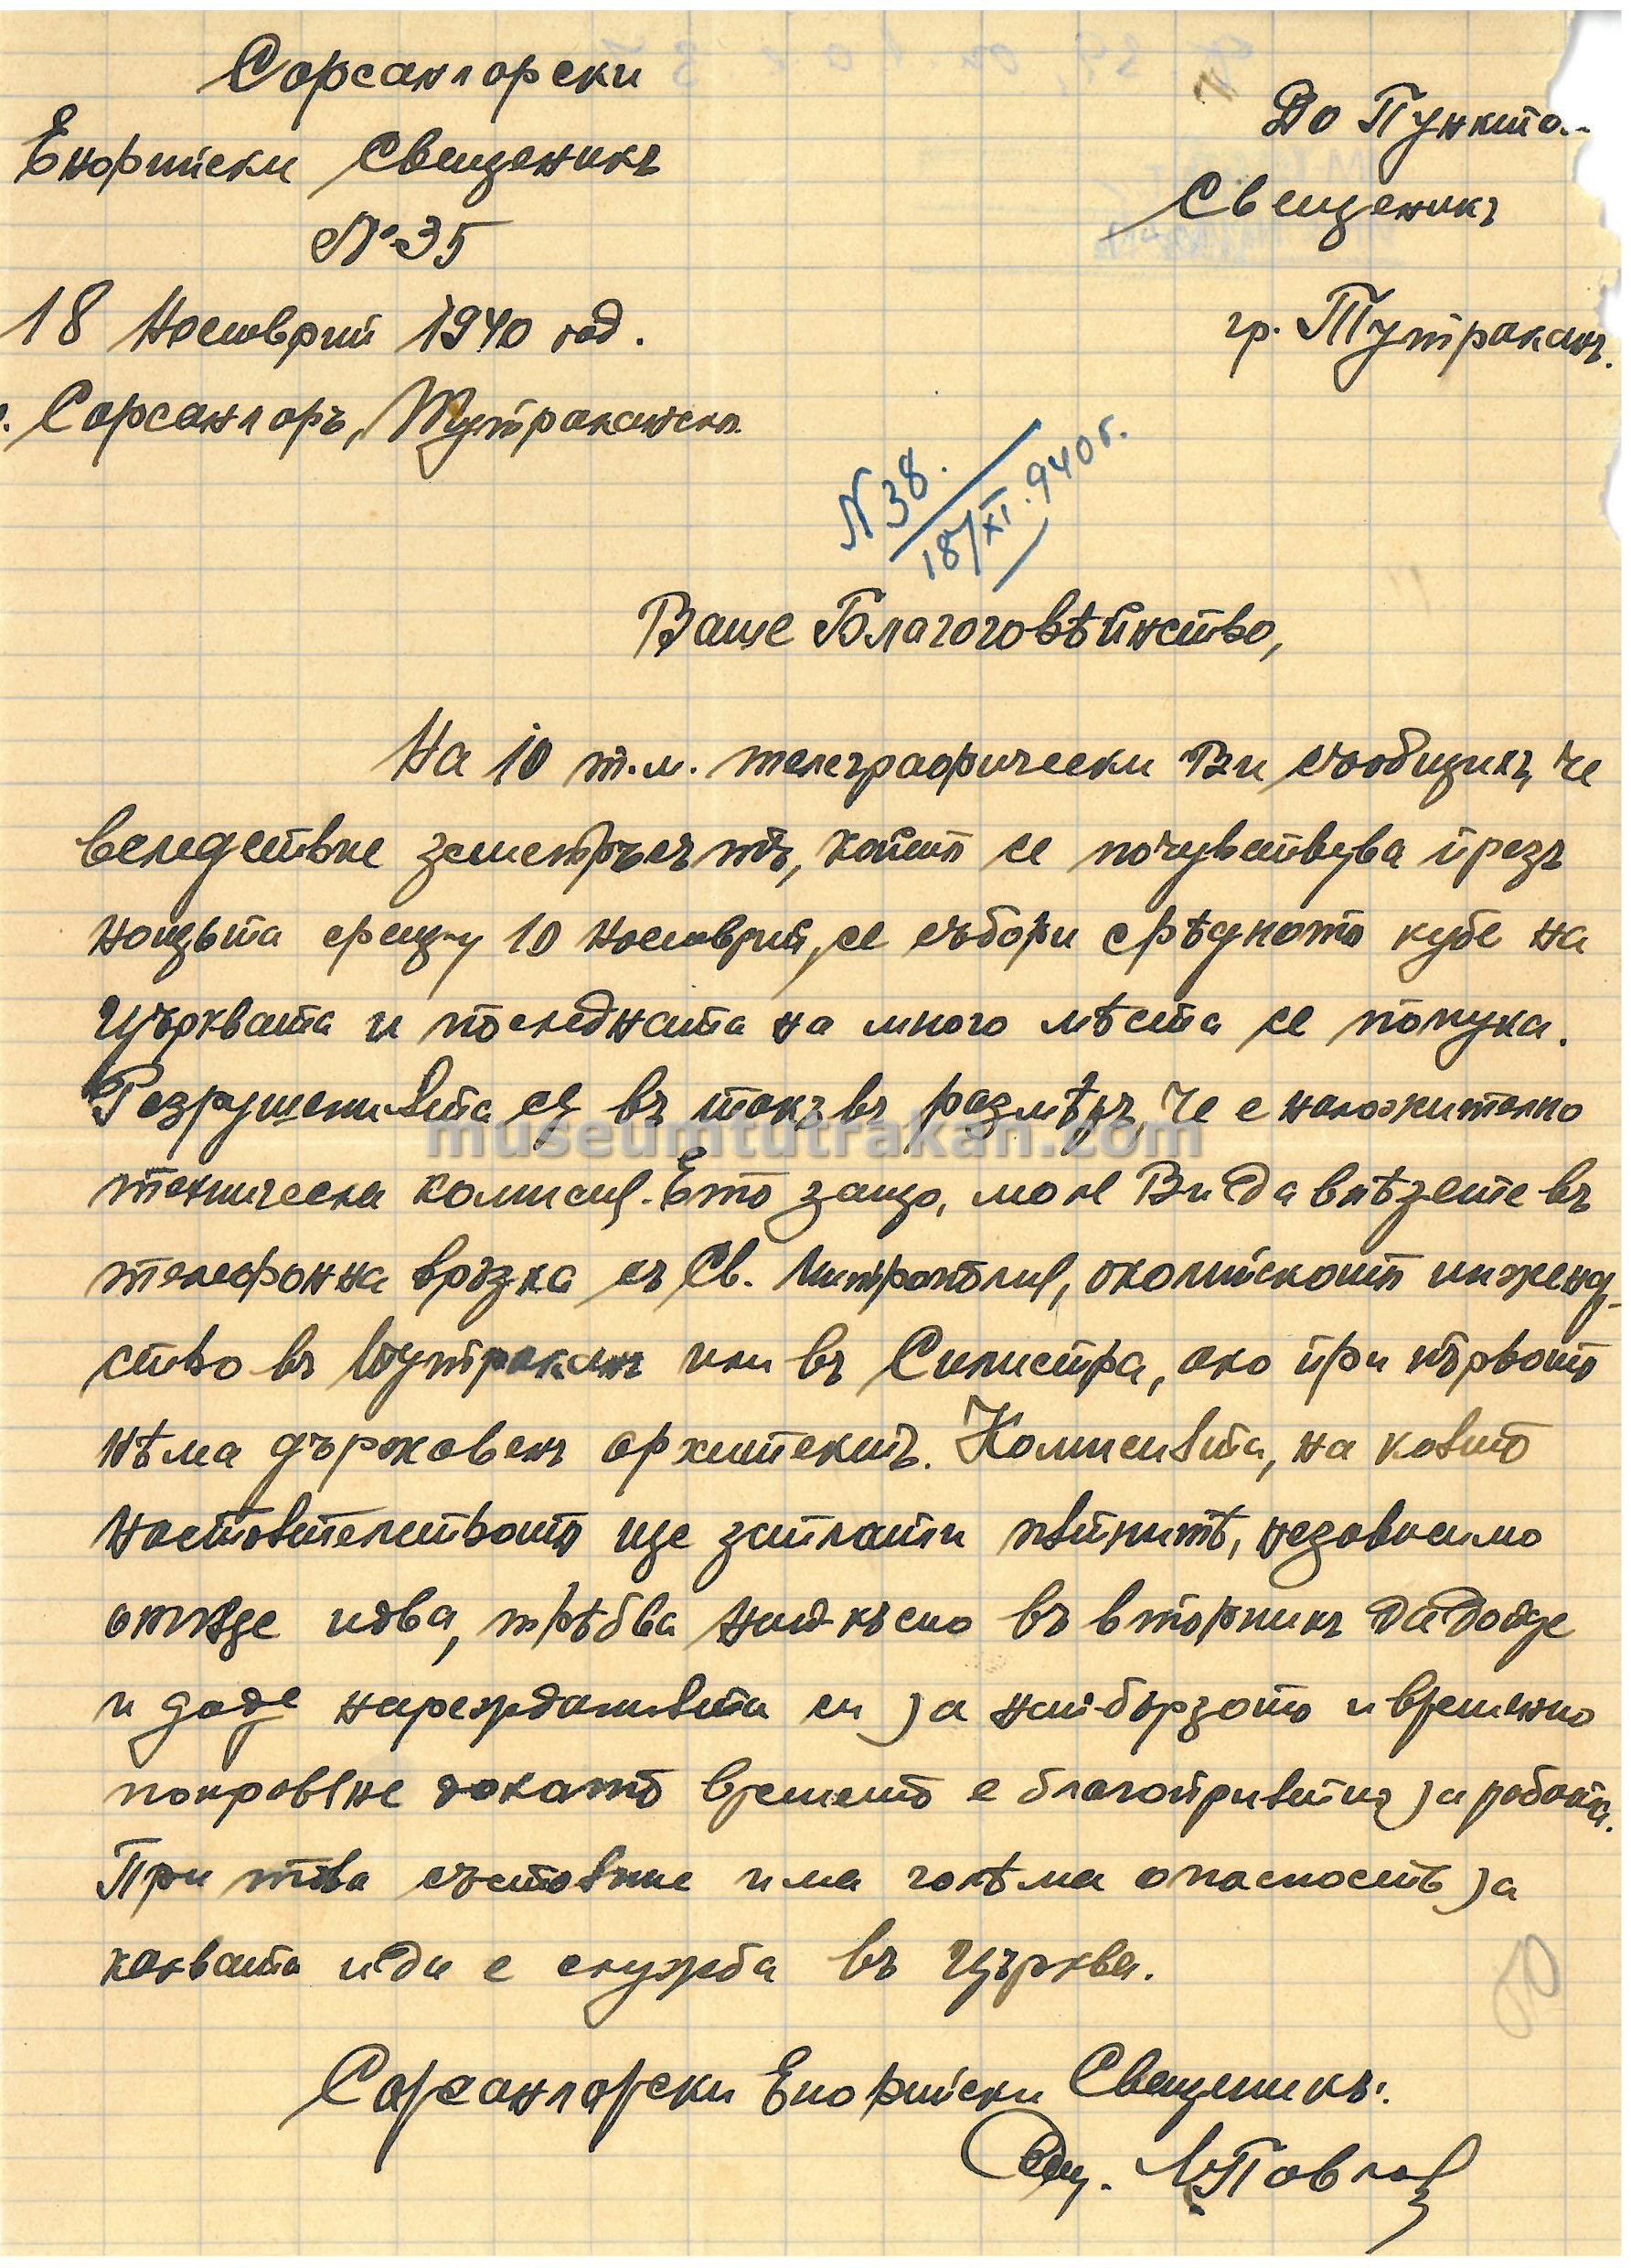 Сарсанларски
Енорийски Свещеникъ
№ 35
18 Ноемврий 1940 год.
с. Сарсанларъ, Тутраканско.
До Пункто..
Свещеникъ
гр. Тутраканъ.
N 38.
18/XI.940 г.
Ваше Благоговѣйнство,
На 10 т.м. телеграфически Ви съобщихъ, че
вследствие земетръсътъ, който се почувствува презъ
нощьта срещу 10 Ноемврий, се събори срѣдното кубе на
Църквата и последната на много мѣста се попука.
Разрушенията сѫ въ такъвъ размѣръ, че е наложително
техническа комисия. Ето защо, моля Ви да влѣзете въ
телефонна връзка съ Св. Митрополия, околийското инженер-
ство въ Тутраканъ или въ Силистра, ако при първото
нѣма държавенъ архитектъ. Комисията, на която
настоятелството ще заплати пѫтнитѣ, независимо
откѫде идва, трѣбва най-късно въ вторникъ да дойде
и даде нарежданията си за най-бързото и временно
покрование докато времето е благоприятно за работа.
При това състояние има голѣма опасность за
каквато и да е служба въ Църква.
Сарсанларски Енорийски Свещеникъ:
Свщ. Павлов
museumtutrakan.com